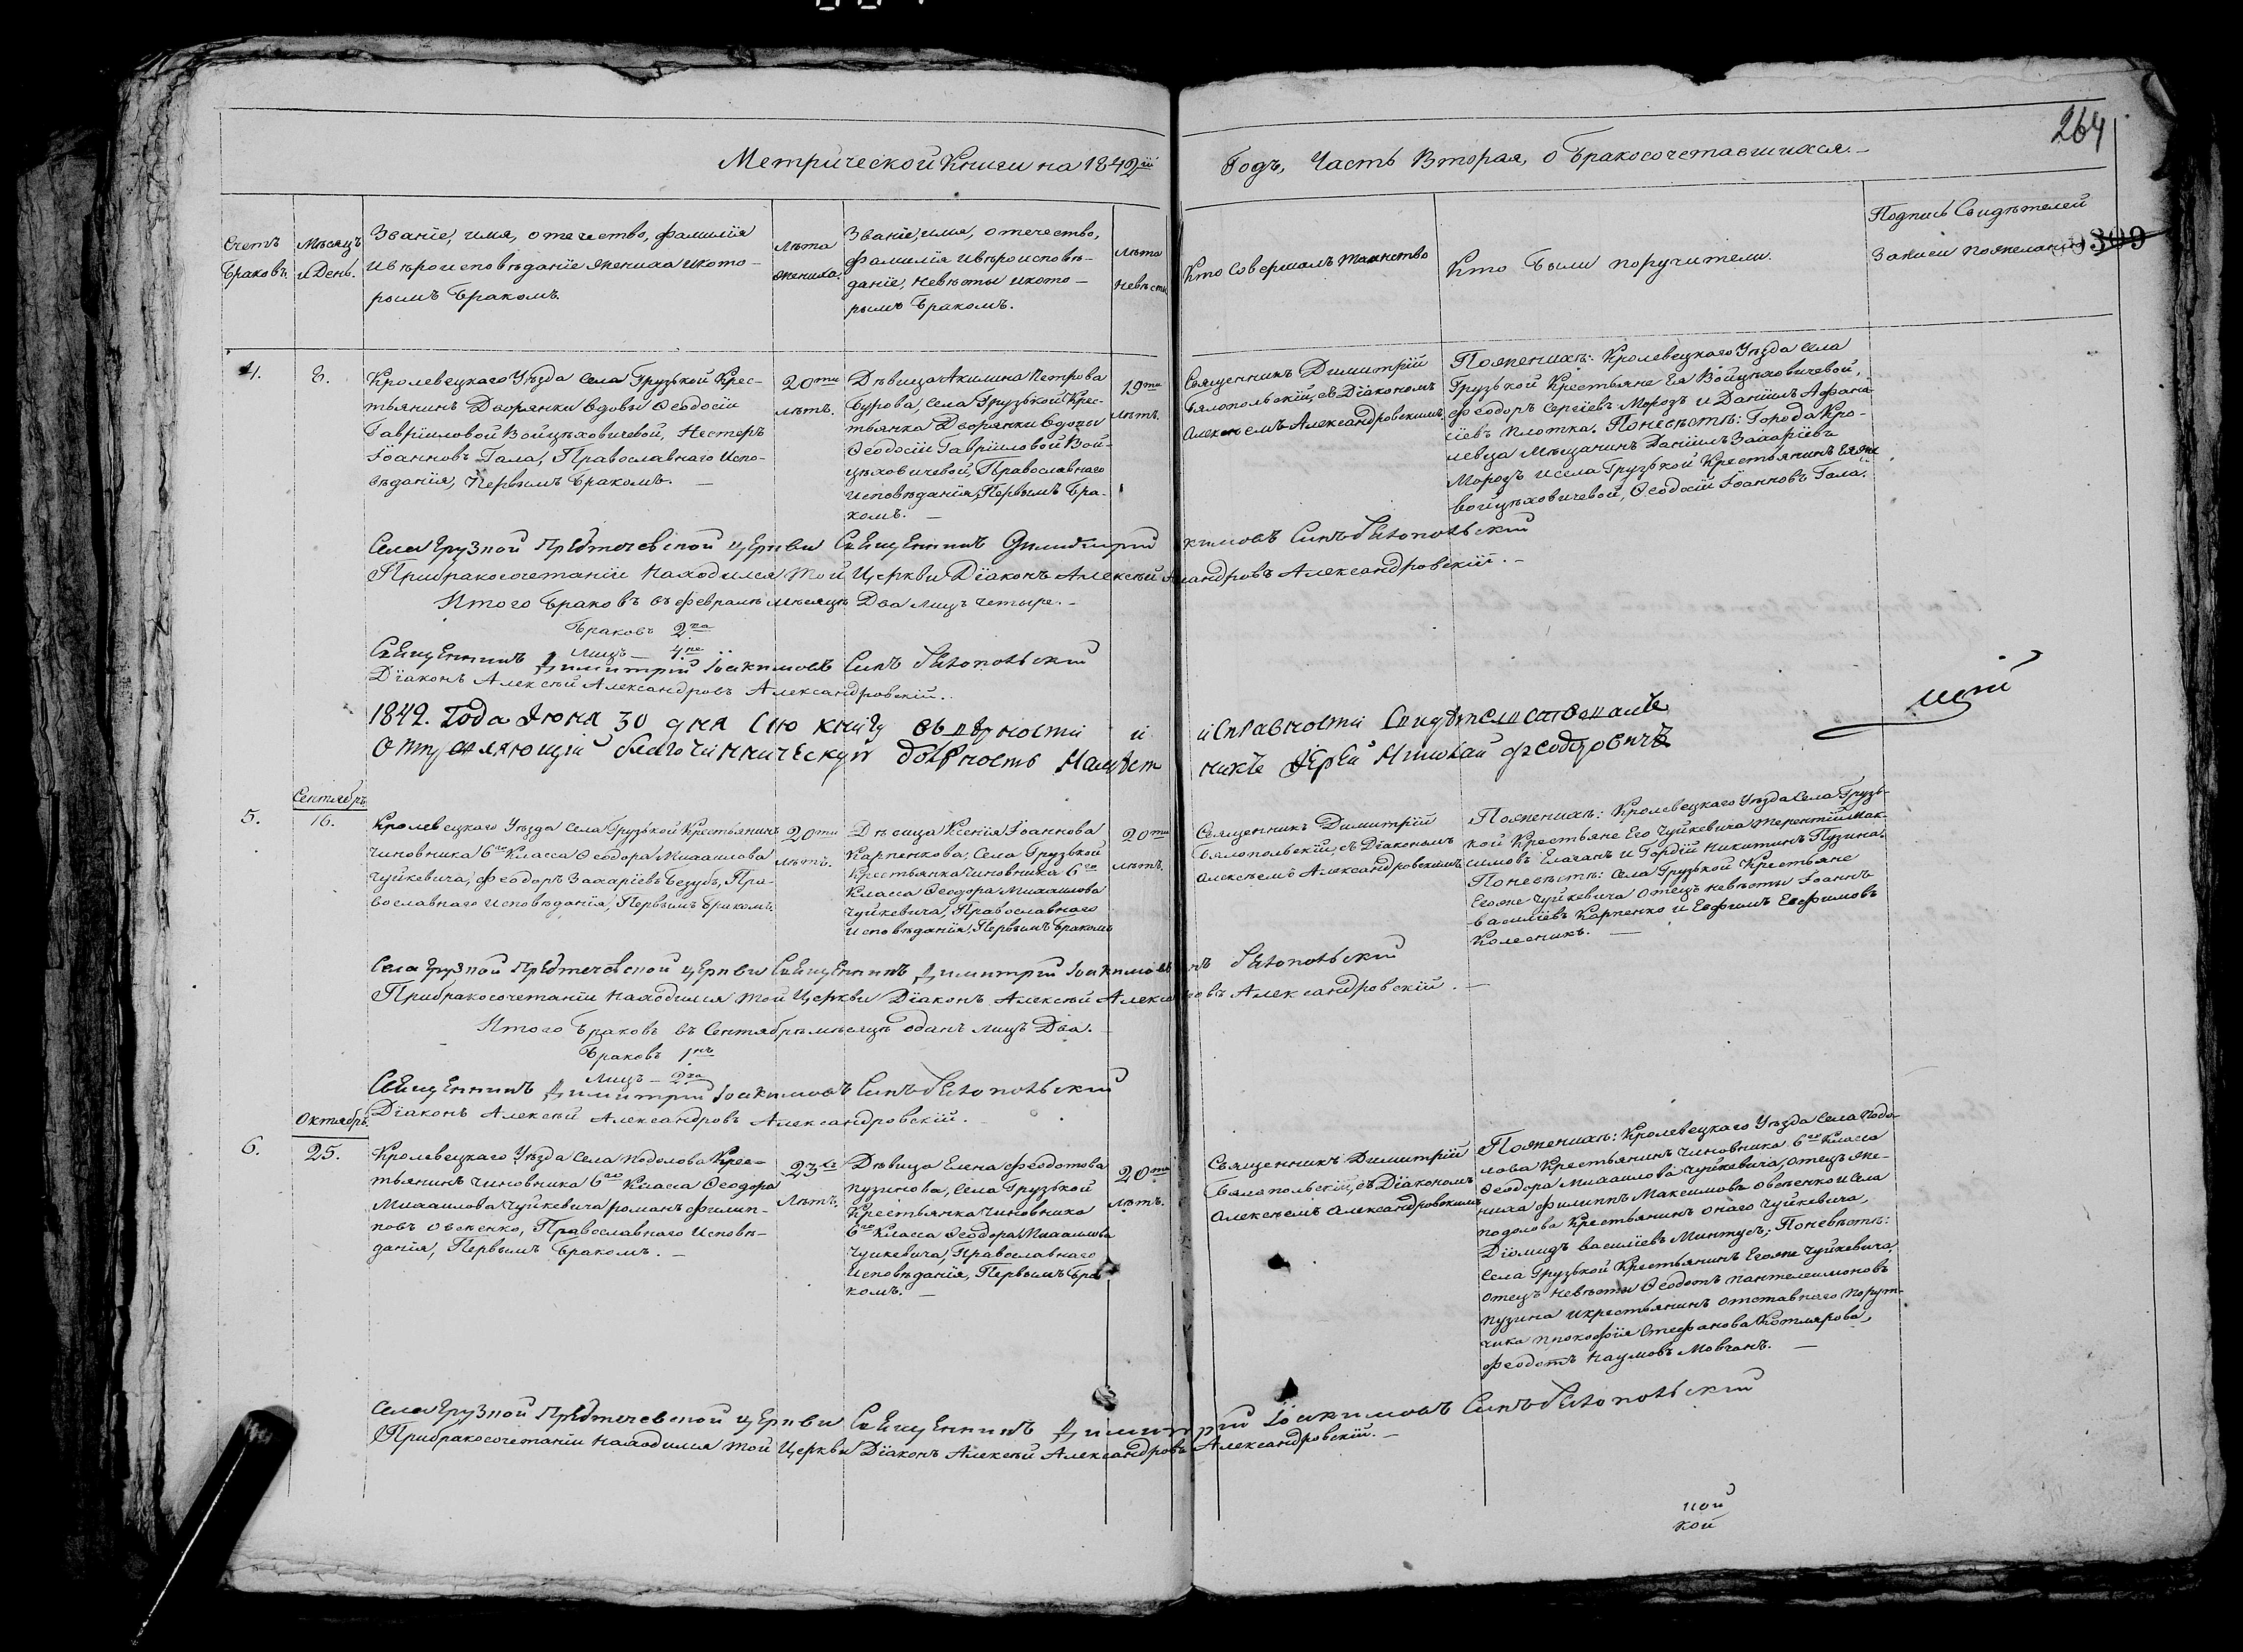 264
Метрической Книги на 1842й Годъ, Часть Вторая, о бракосочетавшихся.
0309
Счетъ
браковъ.
Мѣсяцъ
и День.
Званіе, имя, отечество, фамилія
и вѣроисповѣданіе жениха и кото-
рымъ бракомъ.
Лѣта
жениха.
Званіе, имя, отечество,
фамилія и вѣроисповѣ-
даніе, невѣсты и кото-
рымъ бракомъ.
Лѣта
невѣсты
Кто совершалъ таинство
Кто были поручители.
Подпись Свидѣтелей
Записи по желанію
4.
8.
Кролевецкаго Уѣзда Села Грузької Крес-
тьянинъ Дворянки Вдовы Ѳеодосіи
Гавріиловой Войцѣховичевой, Несторъ
Іоанновъ Гала, Православнаго Испо-
вѣданія, Первымъ бракомъ.
20ти
лѣтъ.
Дѣвица Акилина Петрова
Бурова, Села Грузької Крес-
тьянка Дворянки Вдовы
Ѳеодосіи Гавріиловой Вой-
цѣховичевой, Православнаго
Исповѣданія, Первымъ бра-
комъ.
19ти
лѣтъ.
Священникъ Димитрій
Бялопольскій, съ Діакономъ
Алексѣемъ Александровскимъ.
По женихѣ: Кролевецкаго Уѣзда Села
Грузької Крестьяне Ея Войцѣховичевой,
Феодоръ Сергіевъ Морозъ и Даніилъ Афана-
сіевъ Плотка. По невѣстѣ: Города Кро-
левца Мѣщанинъ Даніилъ Захаріевъ
Морозъ и села Грузької Крестьянинъ Ея же
Войцѣховичевой, Ѳеодосій Іоанновъ Гала.
Села Грузкой Предтечевской церкви Священникъ Димитрій Іоакимовъ Синъ Бялопольский
При бракосочетаніи находился той Церкви Діаконъ Алексѣй Александровъ Александровскій.
Итого браковъ въ Февралѣ мѣсяцѣ Два лицъ четыре.
Браковъ 2ва
Лицъ — 4ре
Священникъ Димитрій Іоакимовъ Синъ Бялопольский
Діаконъ Алексѣй Александровъ Александровскій.
1842. Года Июня 30 дня Сию книгу въ вѣрности и исправности свидѣтельствовалъ
Отправляющій благочинническую должность Намѣстникъ Иерей Николай Феодоровичъ
Сентябрь
5.
16.
Кролевецкаго Уѣзда Села Грузької Крестьянинъ
Чиновника 6го Класса Ѳеодора Михаилова
Чуйкевича, Феодоръ Захаріевъ Беззубъ, Пра-
вославнаго Исповѣданія, Первымъ бракомъ.
20ти
лѣтъ.
Дѣвица Ксенія Іоаннова
Карпенкова, Села Грузької
Крестьянка Чиновника 6го
Класса Ѳеодора Михаилова
Чуйкевича, Православнаго
Исповѣданія, Первымъ бракомъ
20ти
лѣтъ.
Священникъ Димитрій
Бялопольскій, съ Діакономъ
Алексѣемъ Александровскимъ
По женихѣ: Кролевецкаго Уѣзда Села Грузь-
кой Крестьяне Его Чуйкевича Терентій Мак-
симовъ и Гордій Никитинъ Пузина.
По невѣстѣ: Села Грузької Крестьяне
Его же Чуйкевича Отецъ невѣсты Іоаннъ
Василіевъ Карпенко и Евфимъ Евфимовъ
Колесникъ.
Села Грузкой Предтечевской церкви Священникъ Димитрій Іоакимовъ Синъ Бялопольский
При бракосочетаніи находился той Церкви Діаконъ Алексѣй Александровъ Александровскій.
Итого браковъ въ Сентябрѣ мѣсяцѣ одинъ лицъ Два.
Браковъ 1нъ
Лицъ — 2ва
Священникъ Димитрій Іоакимовъ Синъ Бялопольский
Діаконъ Алексѣй Александровъ Александровскій.
Октябрь
6.
25.
Кролевецкаго Уѣзда Села Подолова Крес-
тьянинъ Чиновника 6го Класса Ѳеодора
Михаилова Чуйкевича Романъ Филип-
повъ Овсѣенко, Православнаго Исповѣ-
данія, Первымъ бракомъ.
23хъ
лѣтъ.
Дѣвица Елена Феодотова
Пузинова, Села Грузької
Крестьянка Чиновника
6го Класса Ѳеодора Михаилова
Чуйкевича, Православнаго
Исповѣданія, Первымъ бра-
комъ.
20ти
лѣтъ.
Священникъ Димитрій
Бялопольскій, съ Діакономъ
Алексѣемъ Александровскимъ
По женихѣ: Кролевецкаго Уѣзда Села Подо-
лова Крестьянинъ Чиновника 6го Класса
Ѳеодора Михаилова Чуйкевича, Отецъ же-
ниха Филиппъ Максимовъ Овсѣенко и Села
Подолова Крестьянинъ онаго Чуйкевича,
Діомидъ Василіевъ Минтусъ; По невѣстѣ:
Села Грузької Крестьянинъ Его же Чуйкевича,
Отецъ невѣсты Ѳеодотъ Пантелеимоновъ
Пузина и крестьянинъ отставнаго Порут-
чика Прокофія Стефанова Котлярова,
Феодотъ Наумовъ Мовчанъ.
Села Грузкой Предтечевской церкви Священникъ Димитрій Іоакимовъ Синъ Бялопольский
При бракосочетаніи находился той Церкви Діаконъ Алексѣй Александровъ Александровскій.
ной
кой